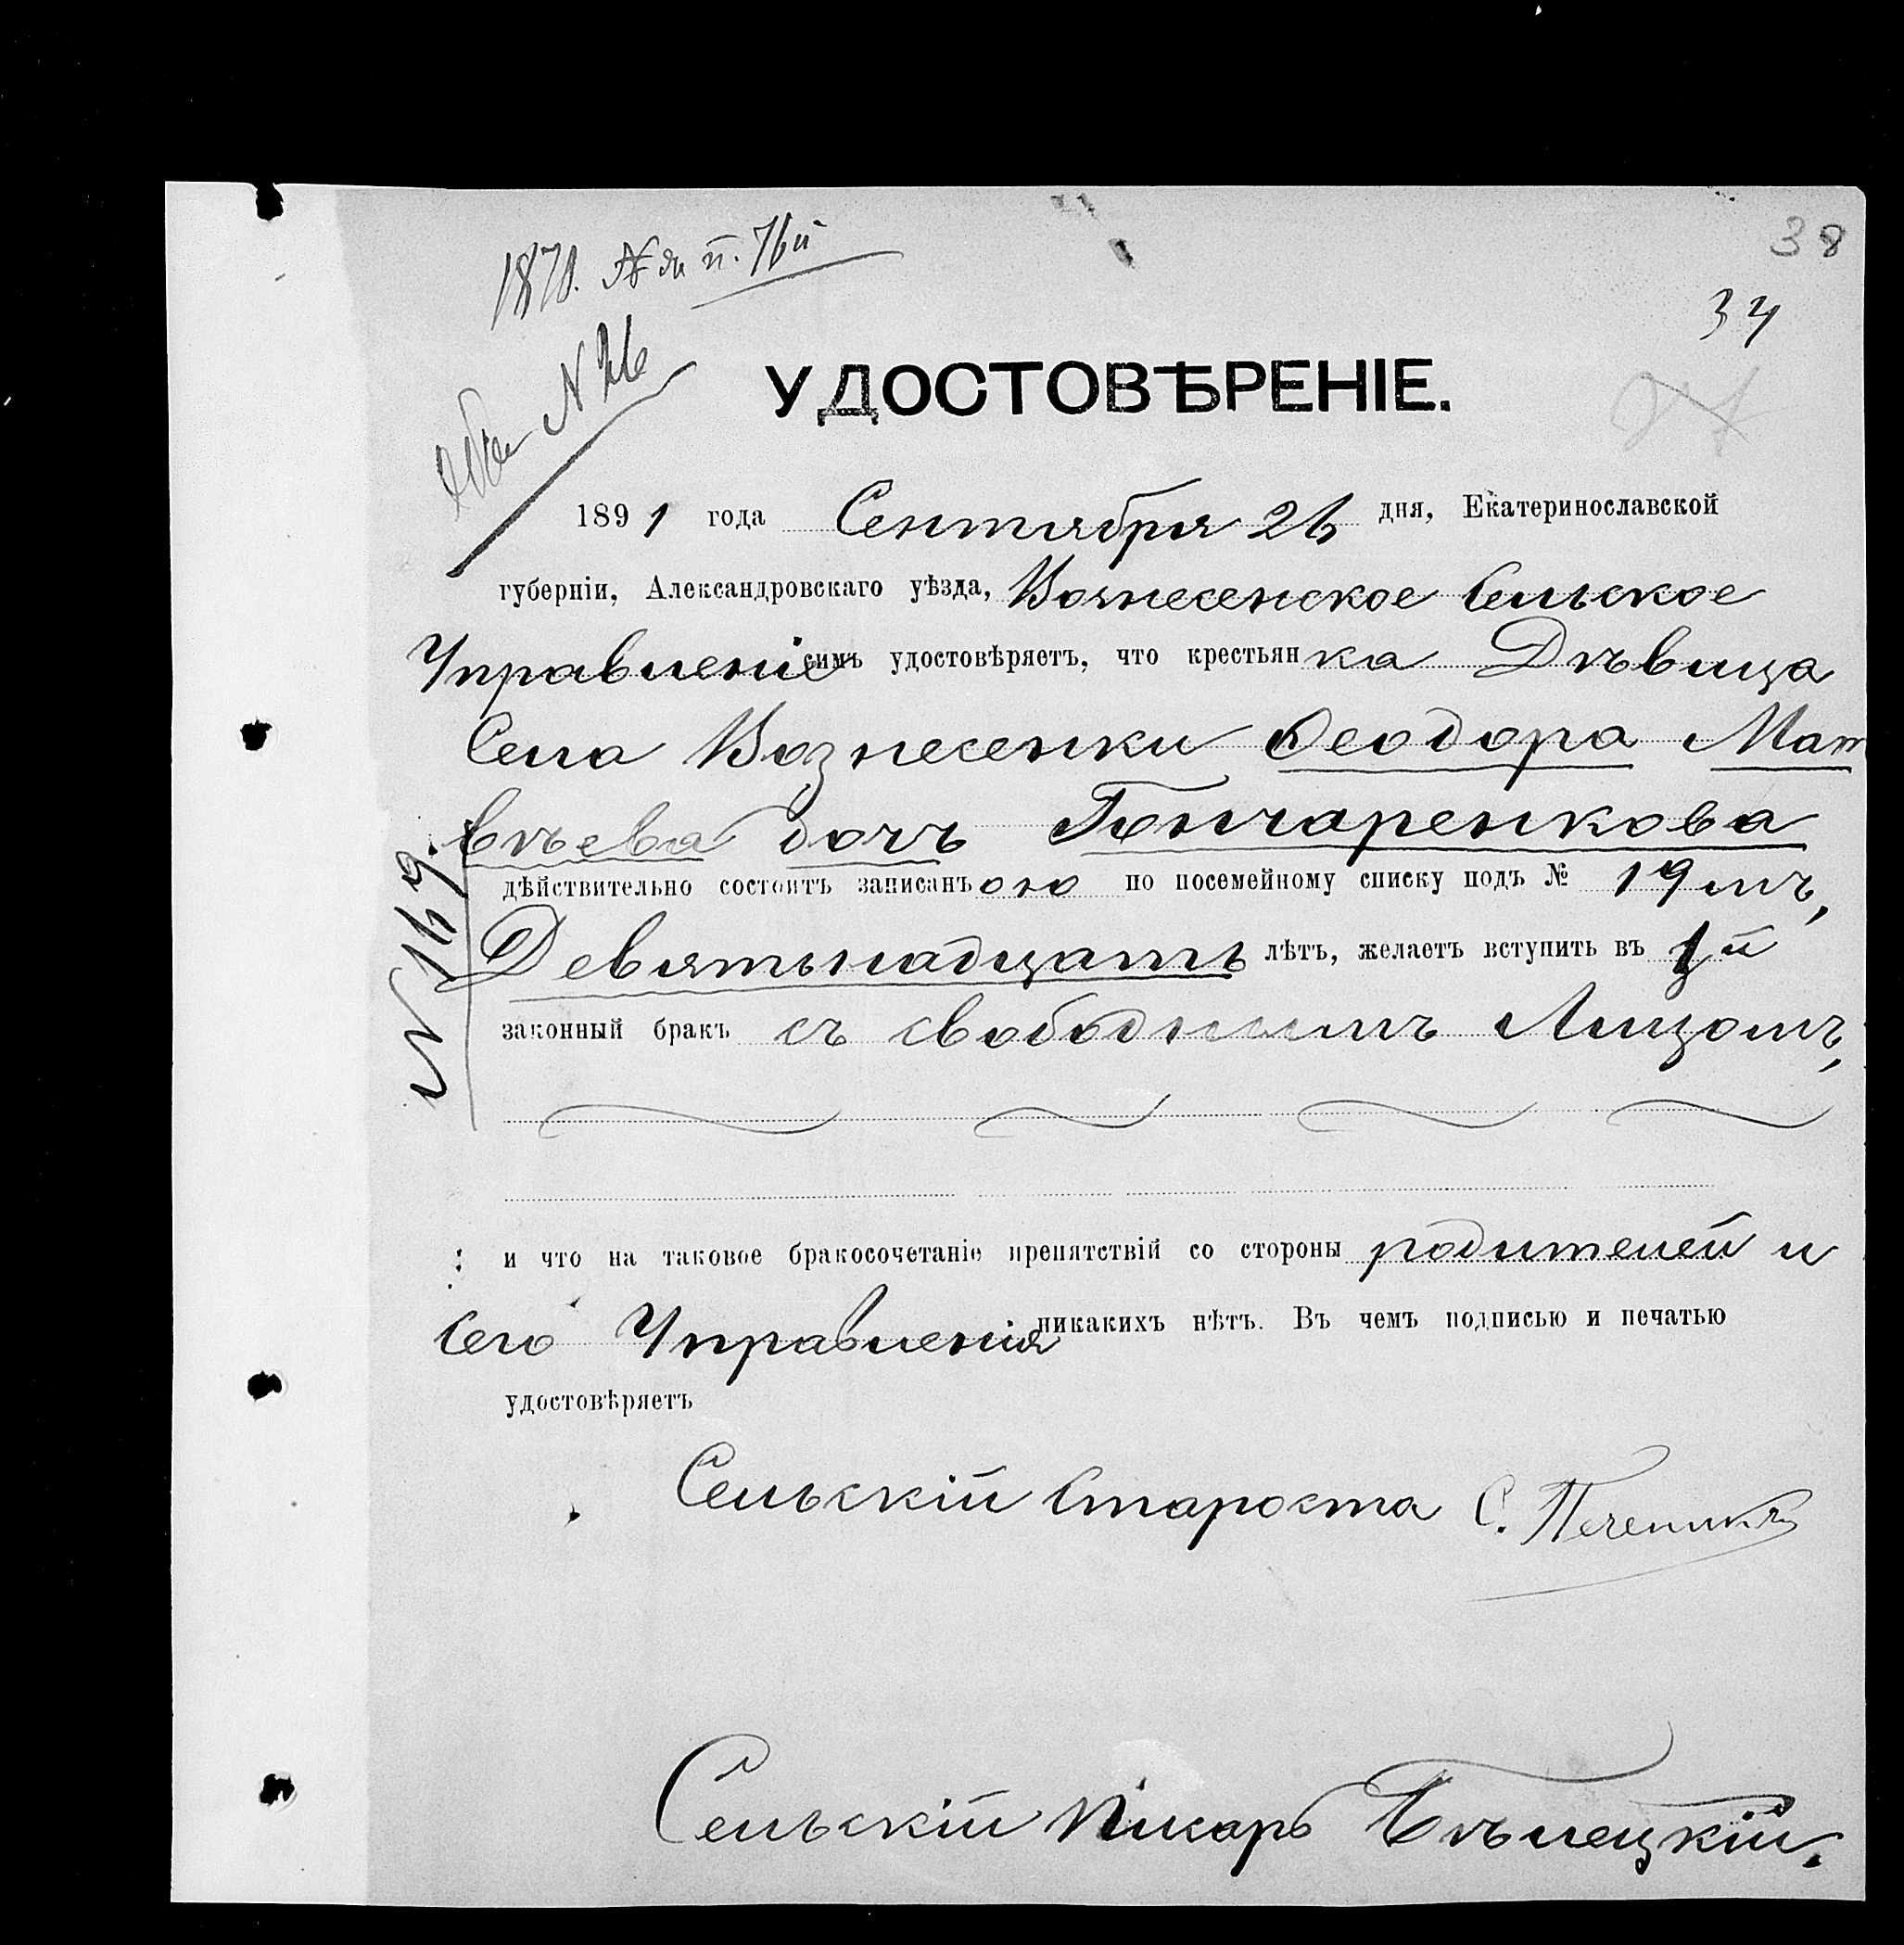 38
34
УДОСТОВѢРЕНІЕ.
N 26
1891 года Сентября 26 дня, Екатеринославской
губерніи, Александровскаго уѣзда, Вознесенское Сельское
Управленіе симъ удостовѣряетъ, что крестьянка Дѣвица
Села Вознесенки Ѳеодора Мат
вѣева дочь Гончаренкова
дѣйствительно состоитъ записанъ ою по посемейному списку подъ № 19 мъ,
Девятьнадцать лѣтъ, желаетъ вступить въ 1й
законный бракъ съ свободнымъ Лицомъ,
и что на таковое бракосочетаніе препятствій со стороны родителей и
сего Управленія никакихъ нѣтъ. Въ чемъ подписью и печатью
удостовѣряетъ
Сельскій Староста С.
Сельскій Писарь Бѣлецкій.
N 1169